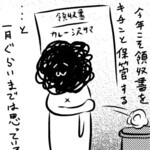 今年こそ領収書を
キチンと保管する
領収書
カレーシオサマ
…と
一月ぐらいまでは思っている